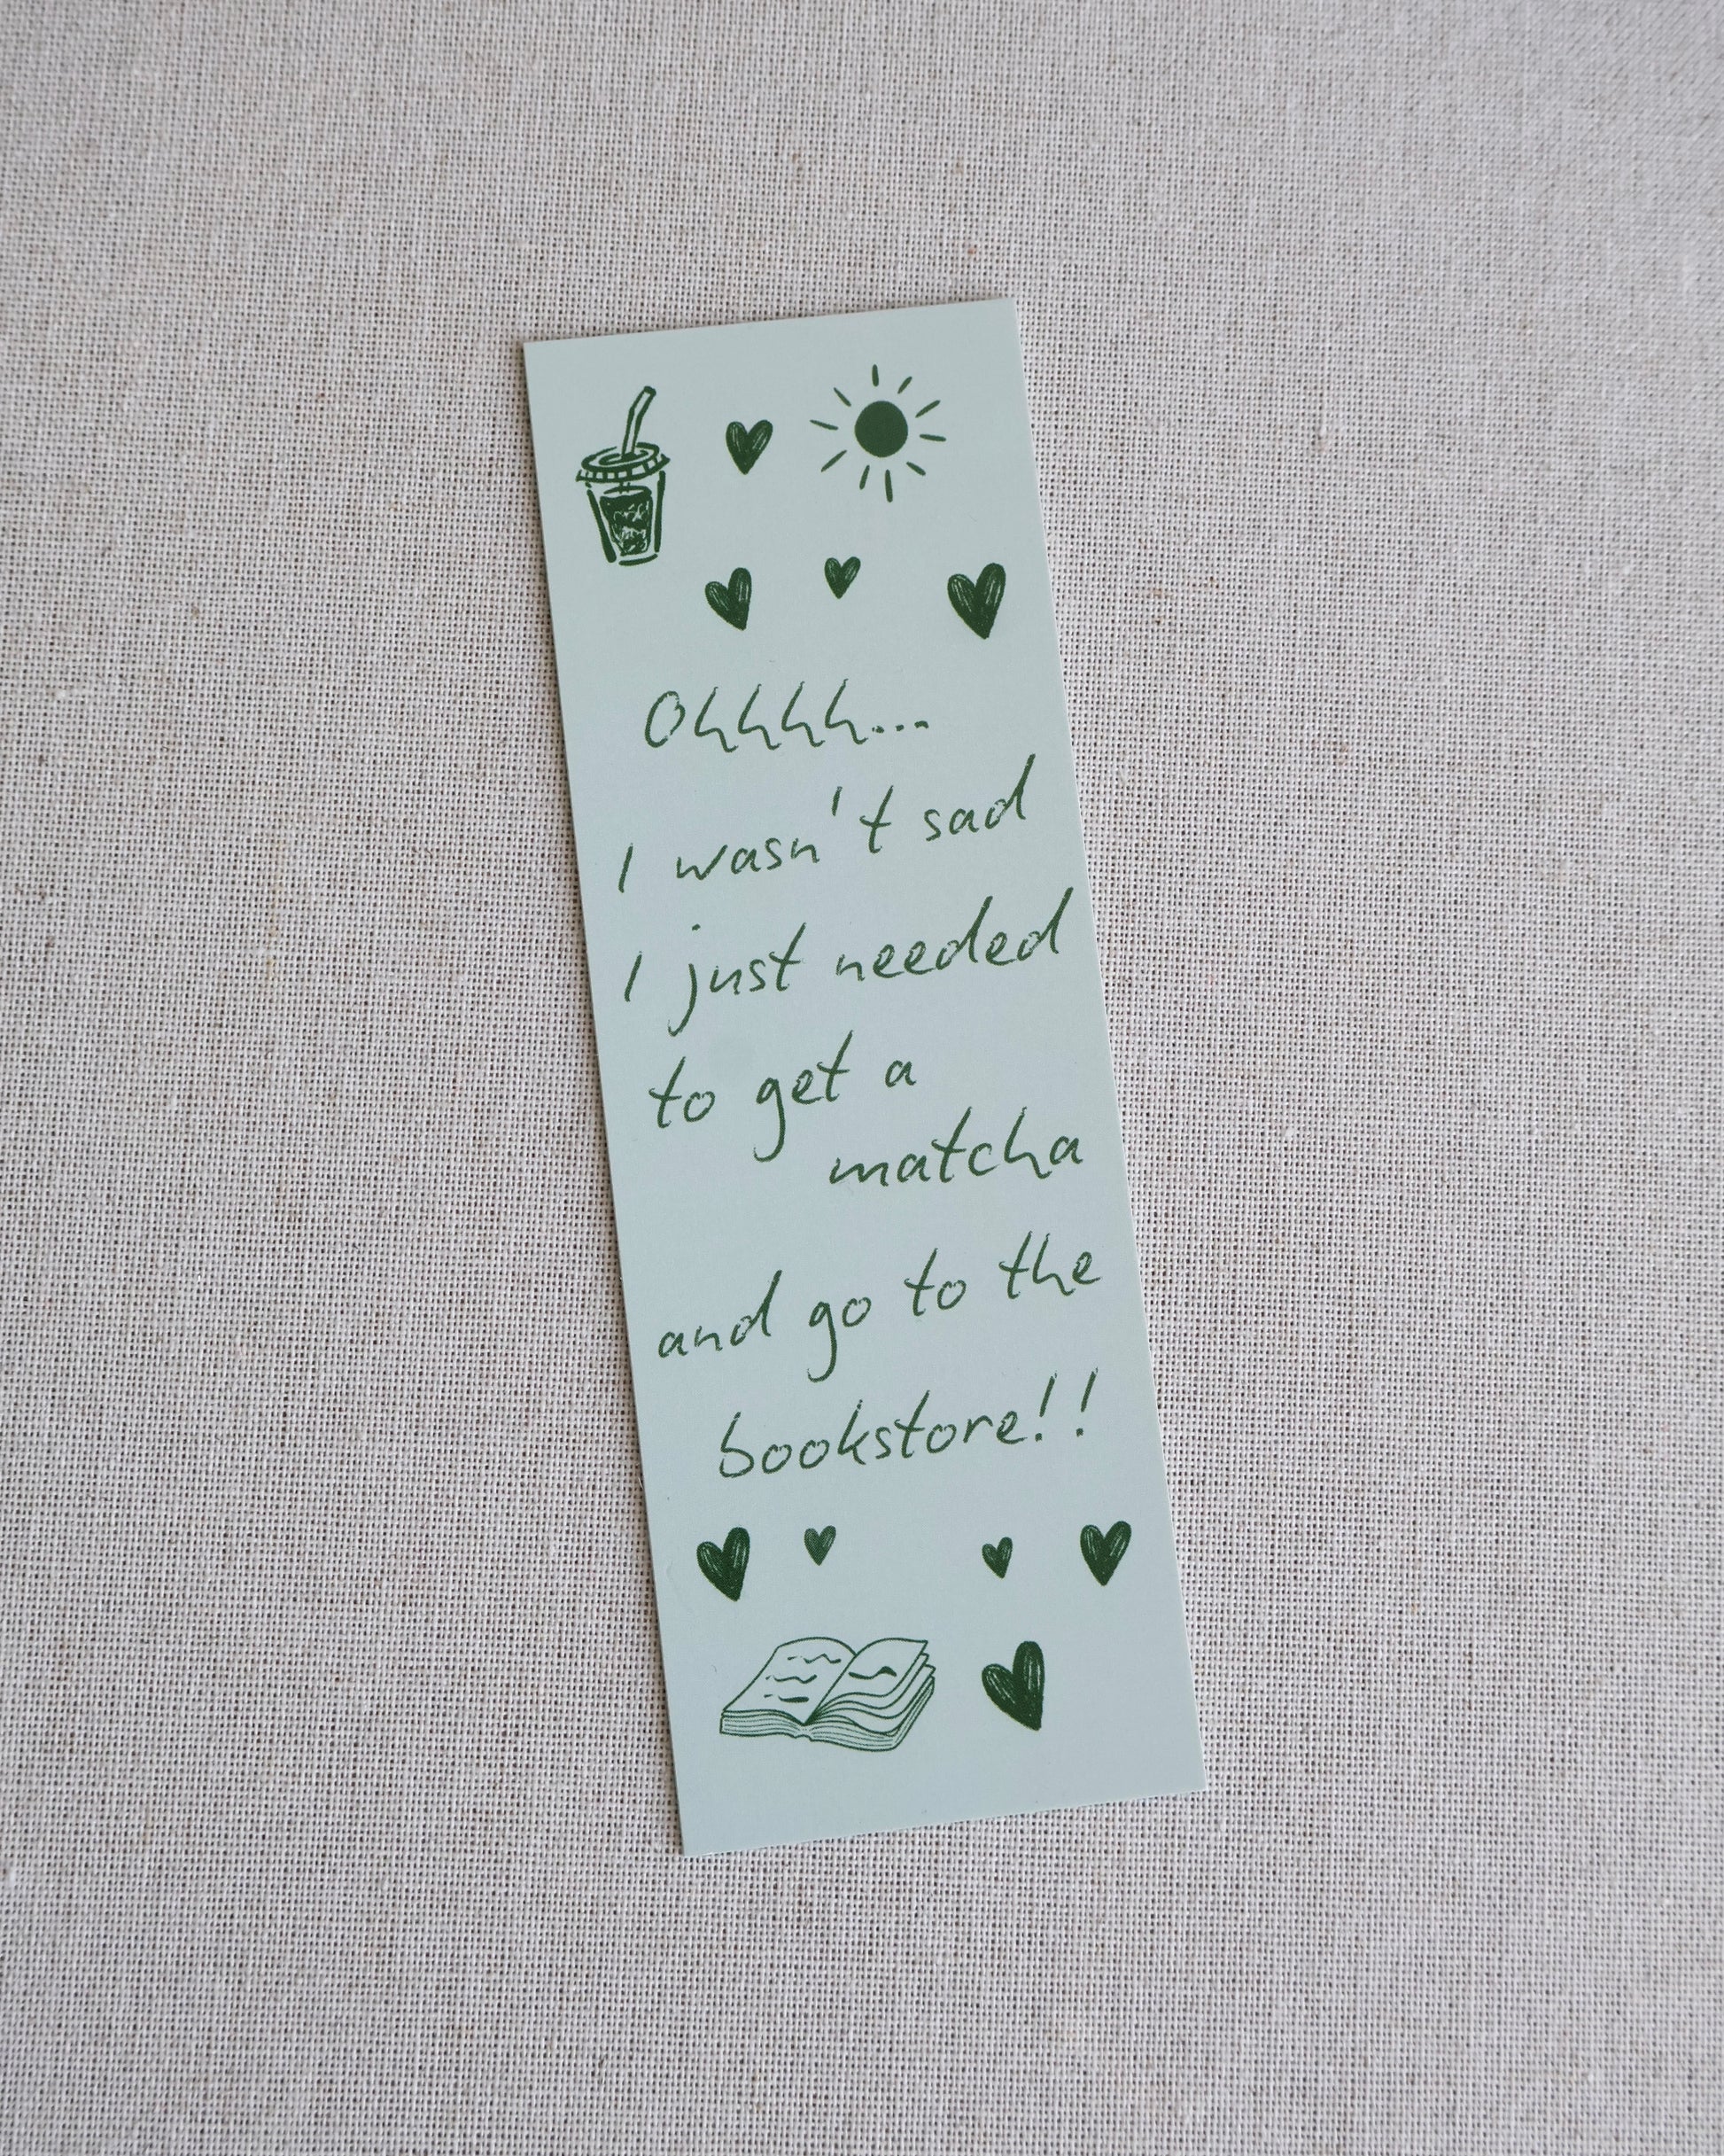 Ohhhh...
I wasn't sad
I just needed
to get a
matcha
and go to the
bookstore!!